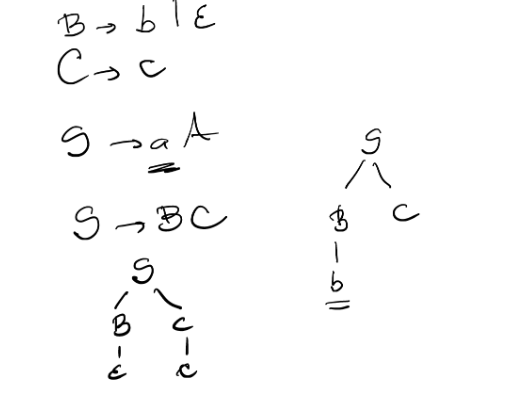 B → b | ε
C → c
S → a A
S → B C
S
B C
ε c
S
B C
b